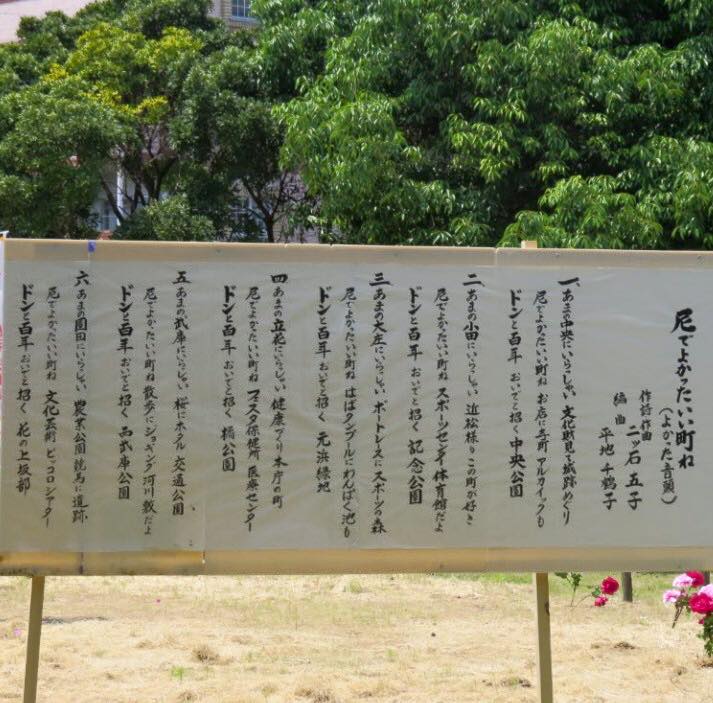 尼でよかったいい町ね
(よかった音頭)
作詩作曲 二ッ石 五子
編曲 平地 千鶴子
一、あまの中央にいらっしゃい 文化財見て城跡めぐり
尼でよかったいい町ね お店に寺町 アルカイックも
ドンと百年 おいでと招く 中央公園
二、あまの小田にいらっしゃい 近松様り この町が好き
尼でよかったいい町ね スポーツセンター 体育館だよ
ドンと百年 おいでと招く 記念公園
三、あまの大庄にいらっしゃい ボートレースにスポーツの森
尼でよかったいい町ね はばタンプールにわんぱく池も
ドンと百年 おいでと招く 元浜緑地
四、あまの立花にいらっしゃい 健康づくり本庁の町
尼でよかったいい町ね フェスタ保健所 医療センター
ドンと百年 おいでと招く 橘公園
五、あまの武庫にいらっしゃい 桜にホタル 交通公園
尼でよかったいい町ね 散歩にジョギング 河川敷だよ
ドンと百年 おいでと招く 西武庫公園
六、あまの園田にいらっしゃい 農業公園 競馬に遺跡
尼でよかったいい町ね 文化芸術 ピッコロシアター
ドンと百年 おいでと招く 花の上坂部